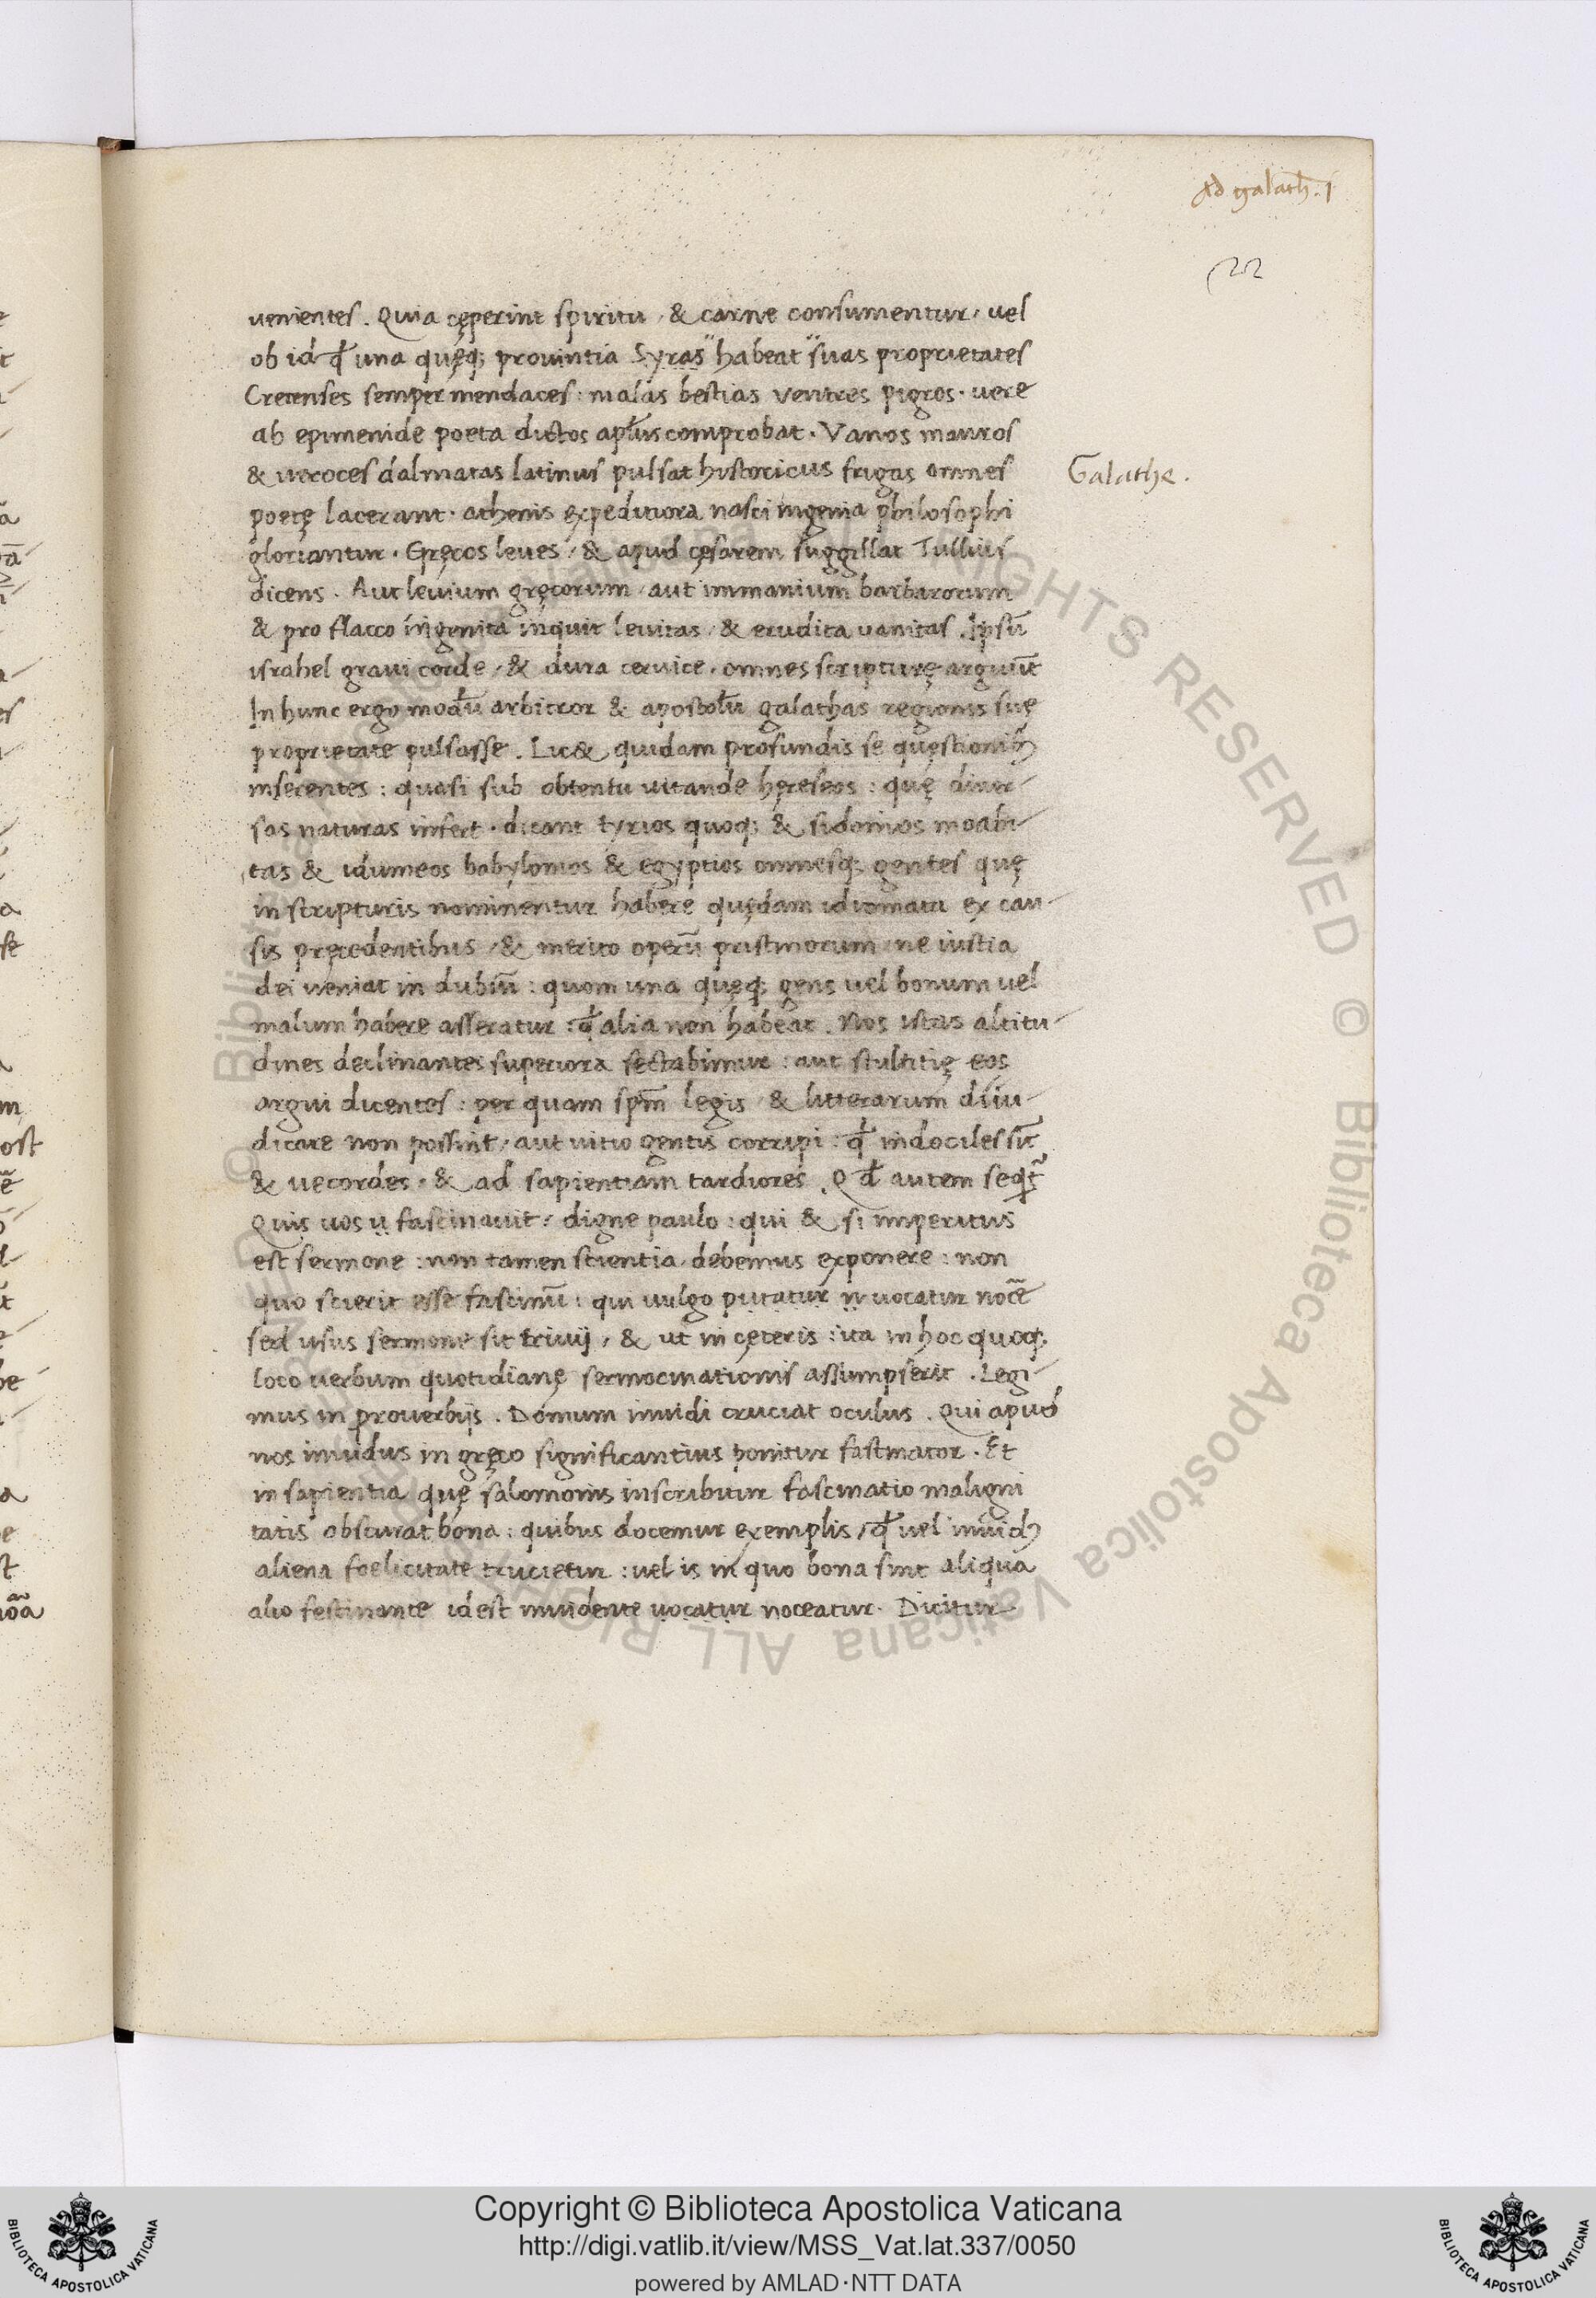 Ad galath̄. i
22
uenientes. Quia cęperint spiritu / & carne consumentur / uel
ob id qđ una quęq; prouintia Syras" habeat "suas proprietates
Cretenses semper mendaces : malas bestias ventres pigros · uere
ab epimenide poeta dictos apl̄us comprobat · Vanos mauros
& ueroces dalmatas latinus pulsat historicus frigas omnes
Galathe.
poetę lacerant · athenis expeditiora nasci ingenia philosophi
gloriantur · Gręcos leues / & apud cęsarem suggillat Tullius
dicens . Aut leuium gręcorum / aut immanium barbarorum
& pro flacco ingenita inquit leuitas / & erudita uanitas . Ipsū
israhel graui corde / & dura ceruice . omnes scripturę arguūt
In hunc ergo modū arbitror & apostolū galathas regionis suę
proprietate pulsasse . Lic& quidam profundis se quęstionib;
inserentes : quasi sub obtentu uitande hęreseos : quę diuer-
sas naturas infert · dicant tyrios quoq; & sidonios moabi-
tas & idumeos babylonios & egyptios omnesq; gentes quę
in scripturis nominentur habere quędam idiomata ex cau-
sis pręcedentibus / & merito operū pristinorum / ne iustia
dei ueniat in dubiū : quom una quęq; gens uel bonum uel
malum habere asseratur : qđ alia non habeat . Nos istas altitu-
dines declinantes superiora sectabimur : aut stultitię eos
argui dicentes : per quam spm̄ legis & litterarum diiu-
dicare non possint / aut uitio gentis corripi : qđ indociles sīt
& uecordes · & ad sapientiam tardiores . Qđ autem seqt̃
Quis uos u fascinauit / digne paulo : qui & si imperitus
est sermone : non tamen scientia / debemus exponere : non
quo scierit esse fascinū : qui uulgo putatur n uocatur nocē̄
sed usus sermone sit triuij / & ut in cęteris : ita in hoc quoq;
loco uerbum quotidianę sermocinationis assumpserit . Legi-
mus in prouerbijs . Domum inuidi cruciat oculus . Qui apud
nos inuidus in gręco significantius ponitur fastinator · Et
in sapientia quę salomonis inscribitur fascinatio maligni
tatis obscurat bona : quibus docemur exemplis / qđ uel inuid;
aliena foelicitate crucietur : uel is in quo bona sint aliqua
alio festinante id est inuidente uocatur noceatur · Dicitur
© Biblioteca Apostolica Vaticana ALL RIGHTS RESERVED
Copyright © Biblioteca Apostolica Vaticana
http://digi.vatlib.it/view/MSS_Vat.lat.337/0050
powered by AMLAD·NTT DATA
BIBLIOTECA APOSTOLICA VATICANA
BIBLIOTECA APOSTOLICA VATICANA